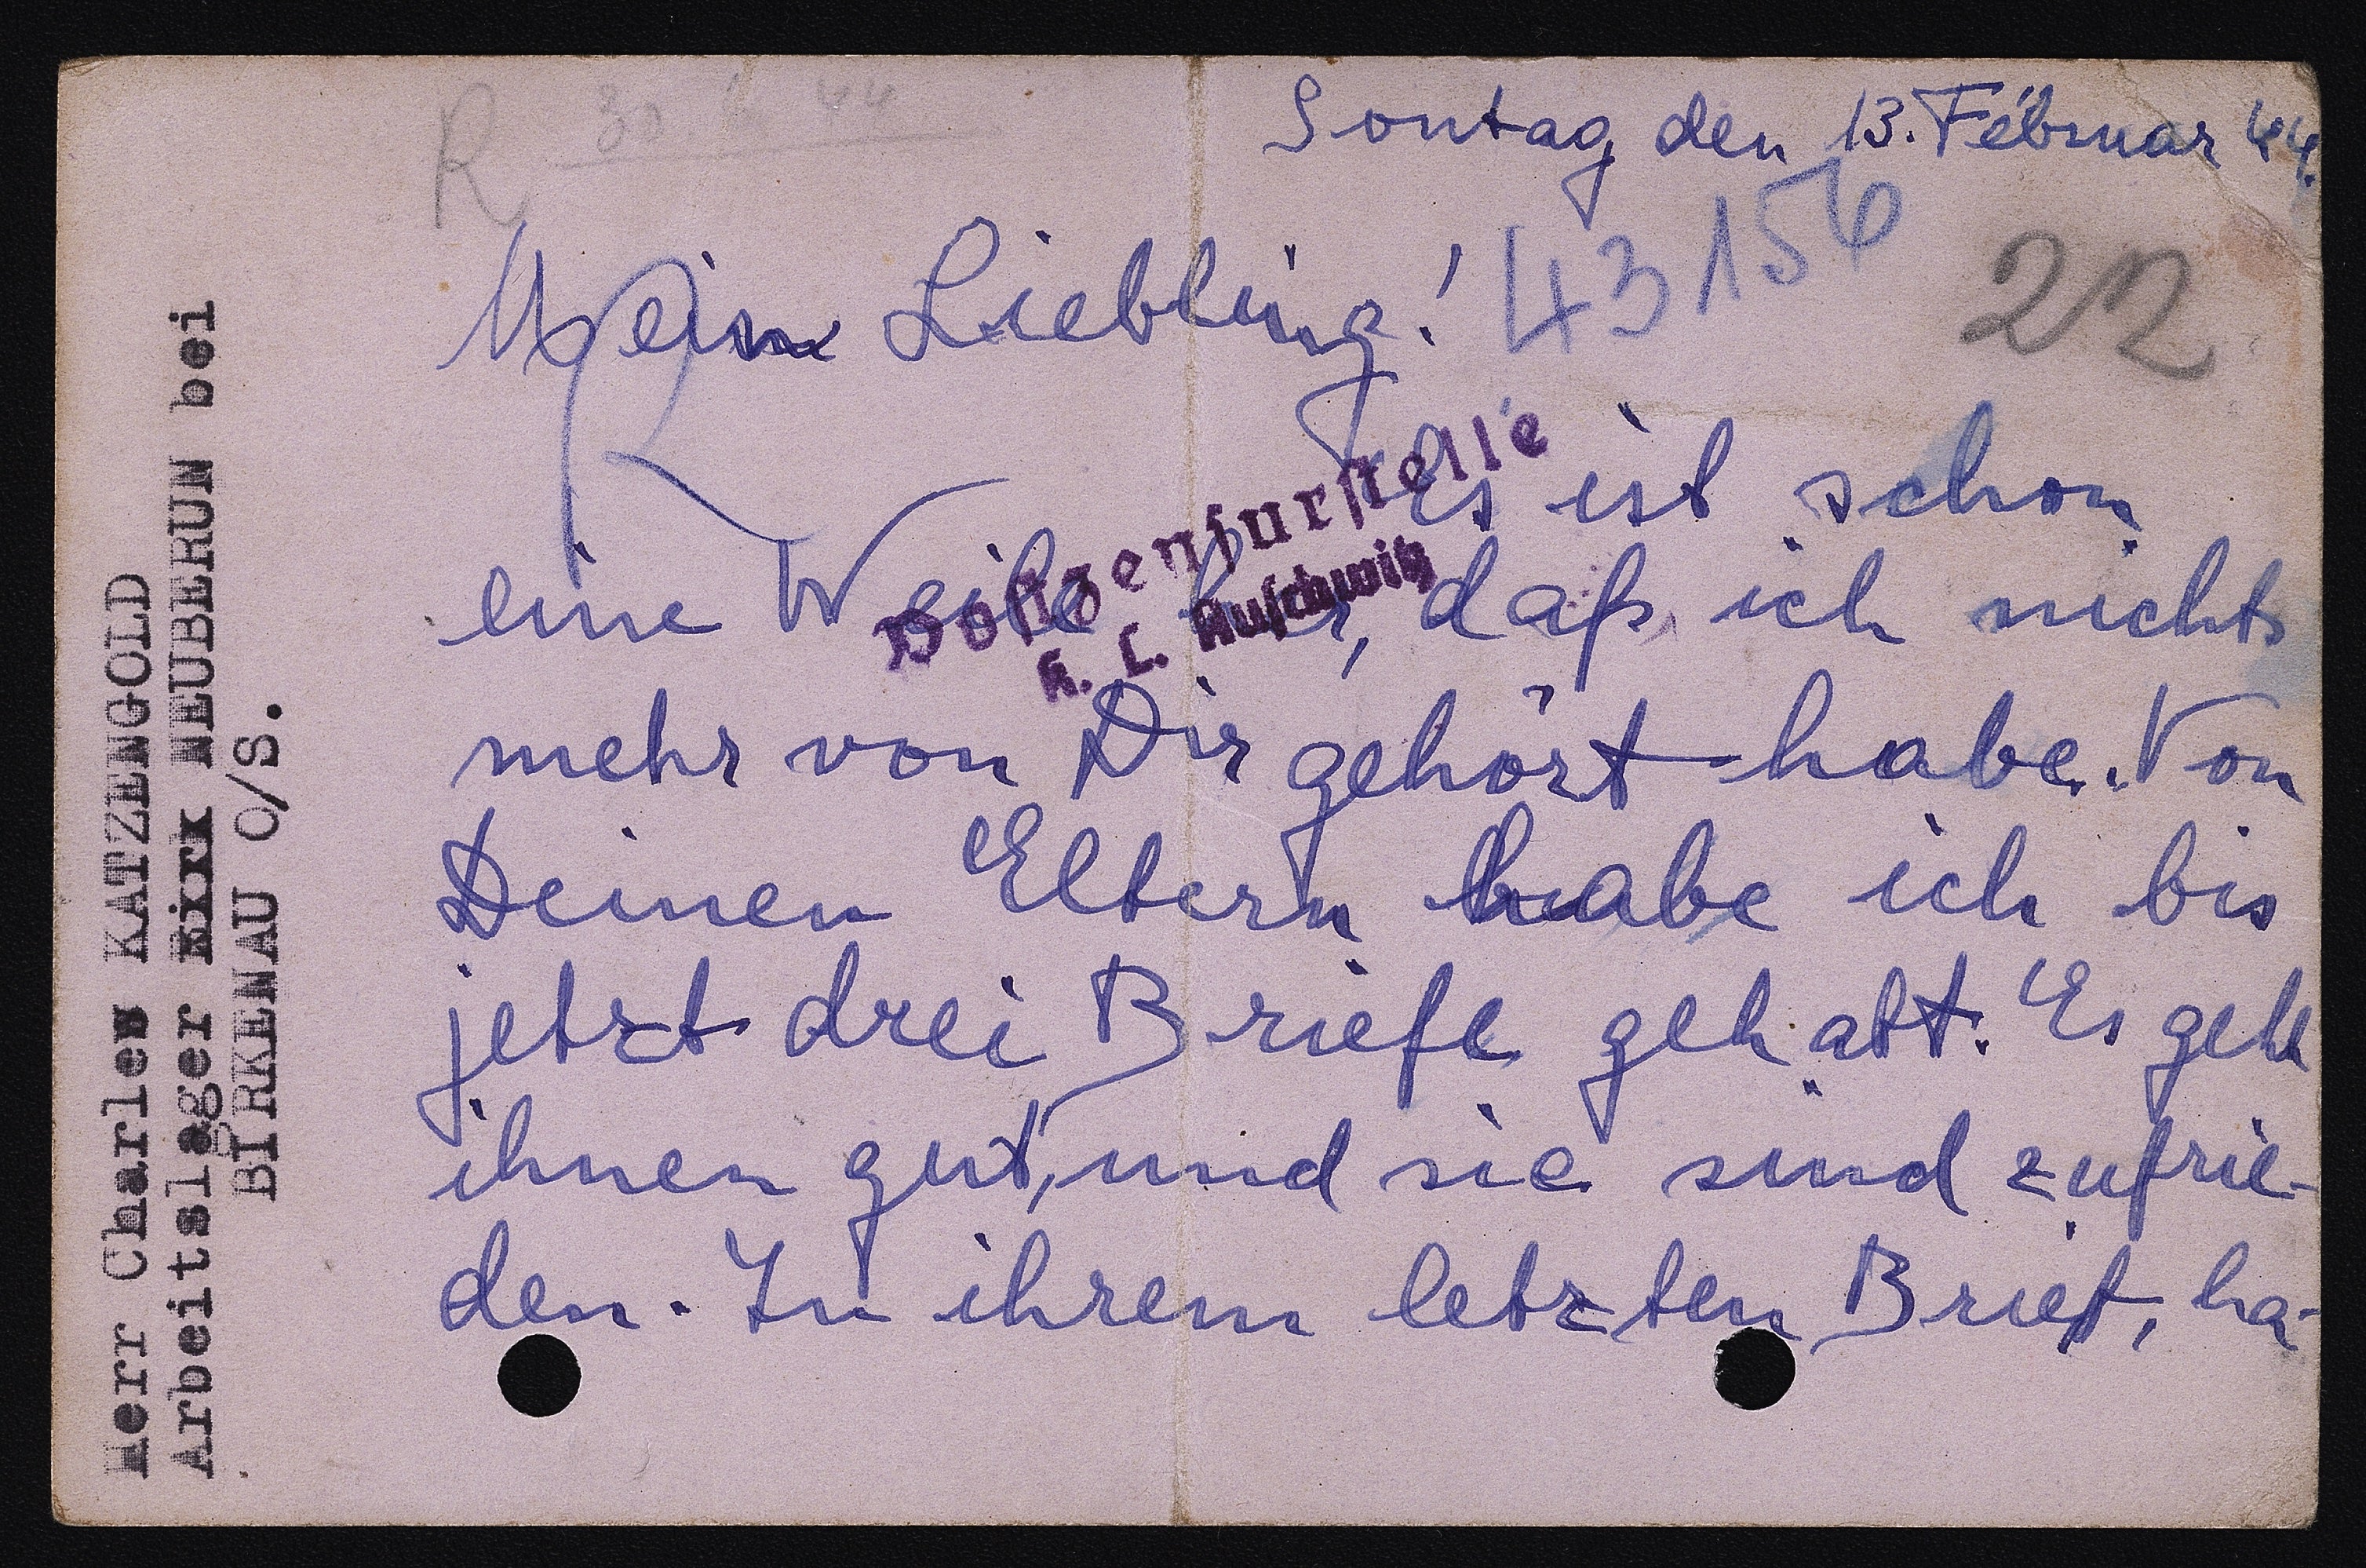 R 30 6 44
Sontag den 13. Februar 44.
43156
22
Mein Liebling!
R
Es ist schon
eine Weile her, daß ich nichts
mehr von Dir gehört habe. Von
Deinen Eltern habe ich bis
jetzt drei Briefe gehabt. Es geht
ihnen gut, und sie sind zufrie-
den. In ihrem letzten Brief, ha-
Postzensurstelle
K. L. Auschwitz
Herr Charles KATZENGOLD
Arbeitslager NEUBERUN bei
BIRKENAU O/S.